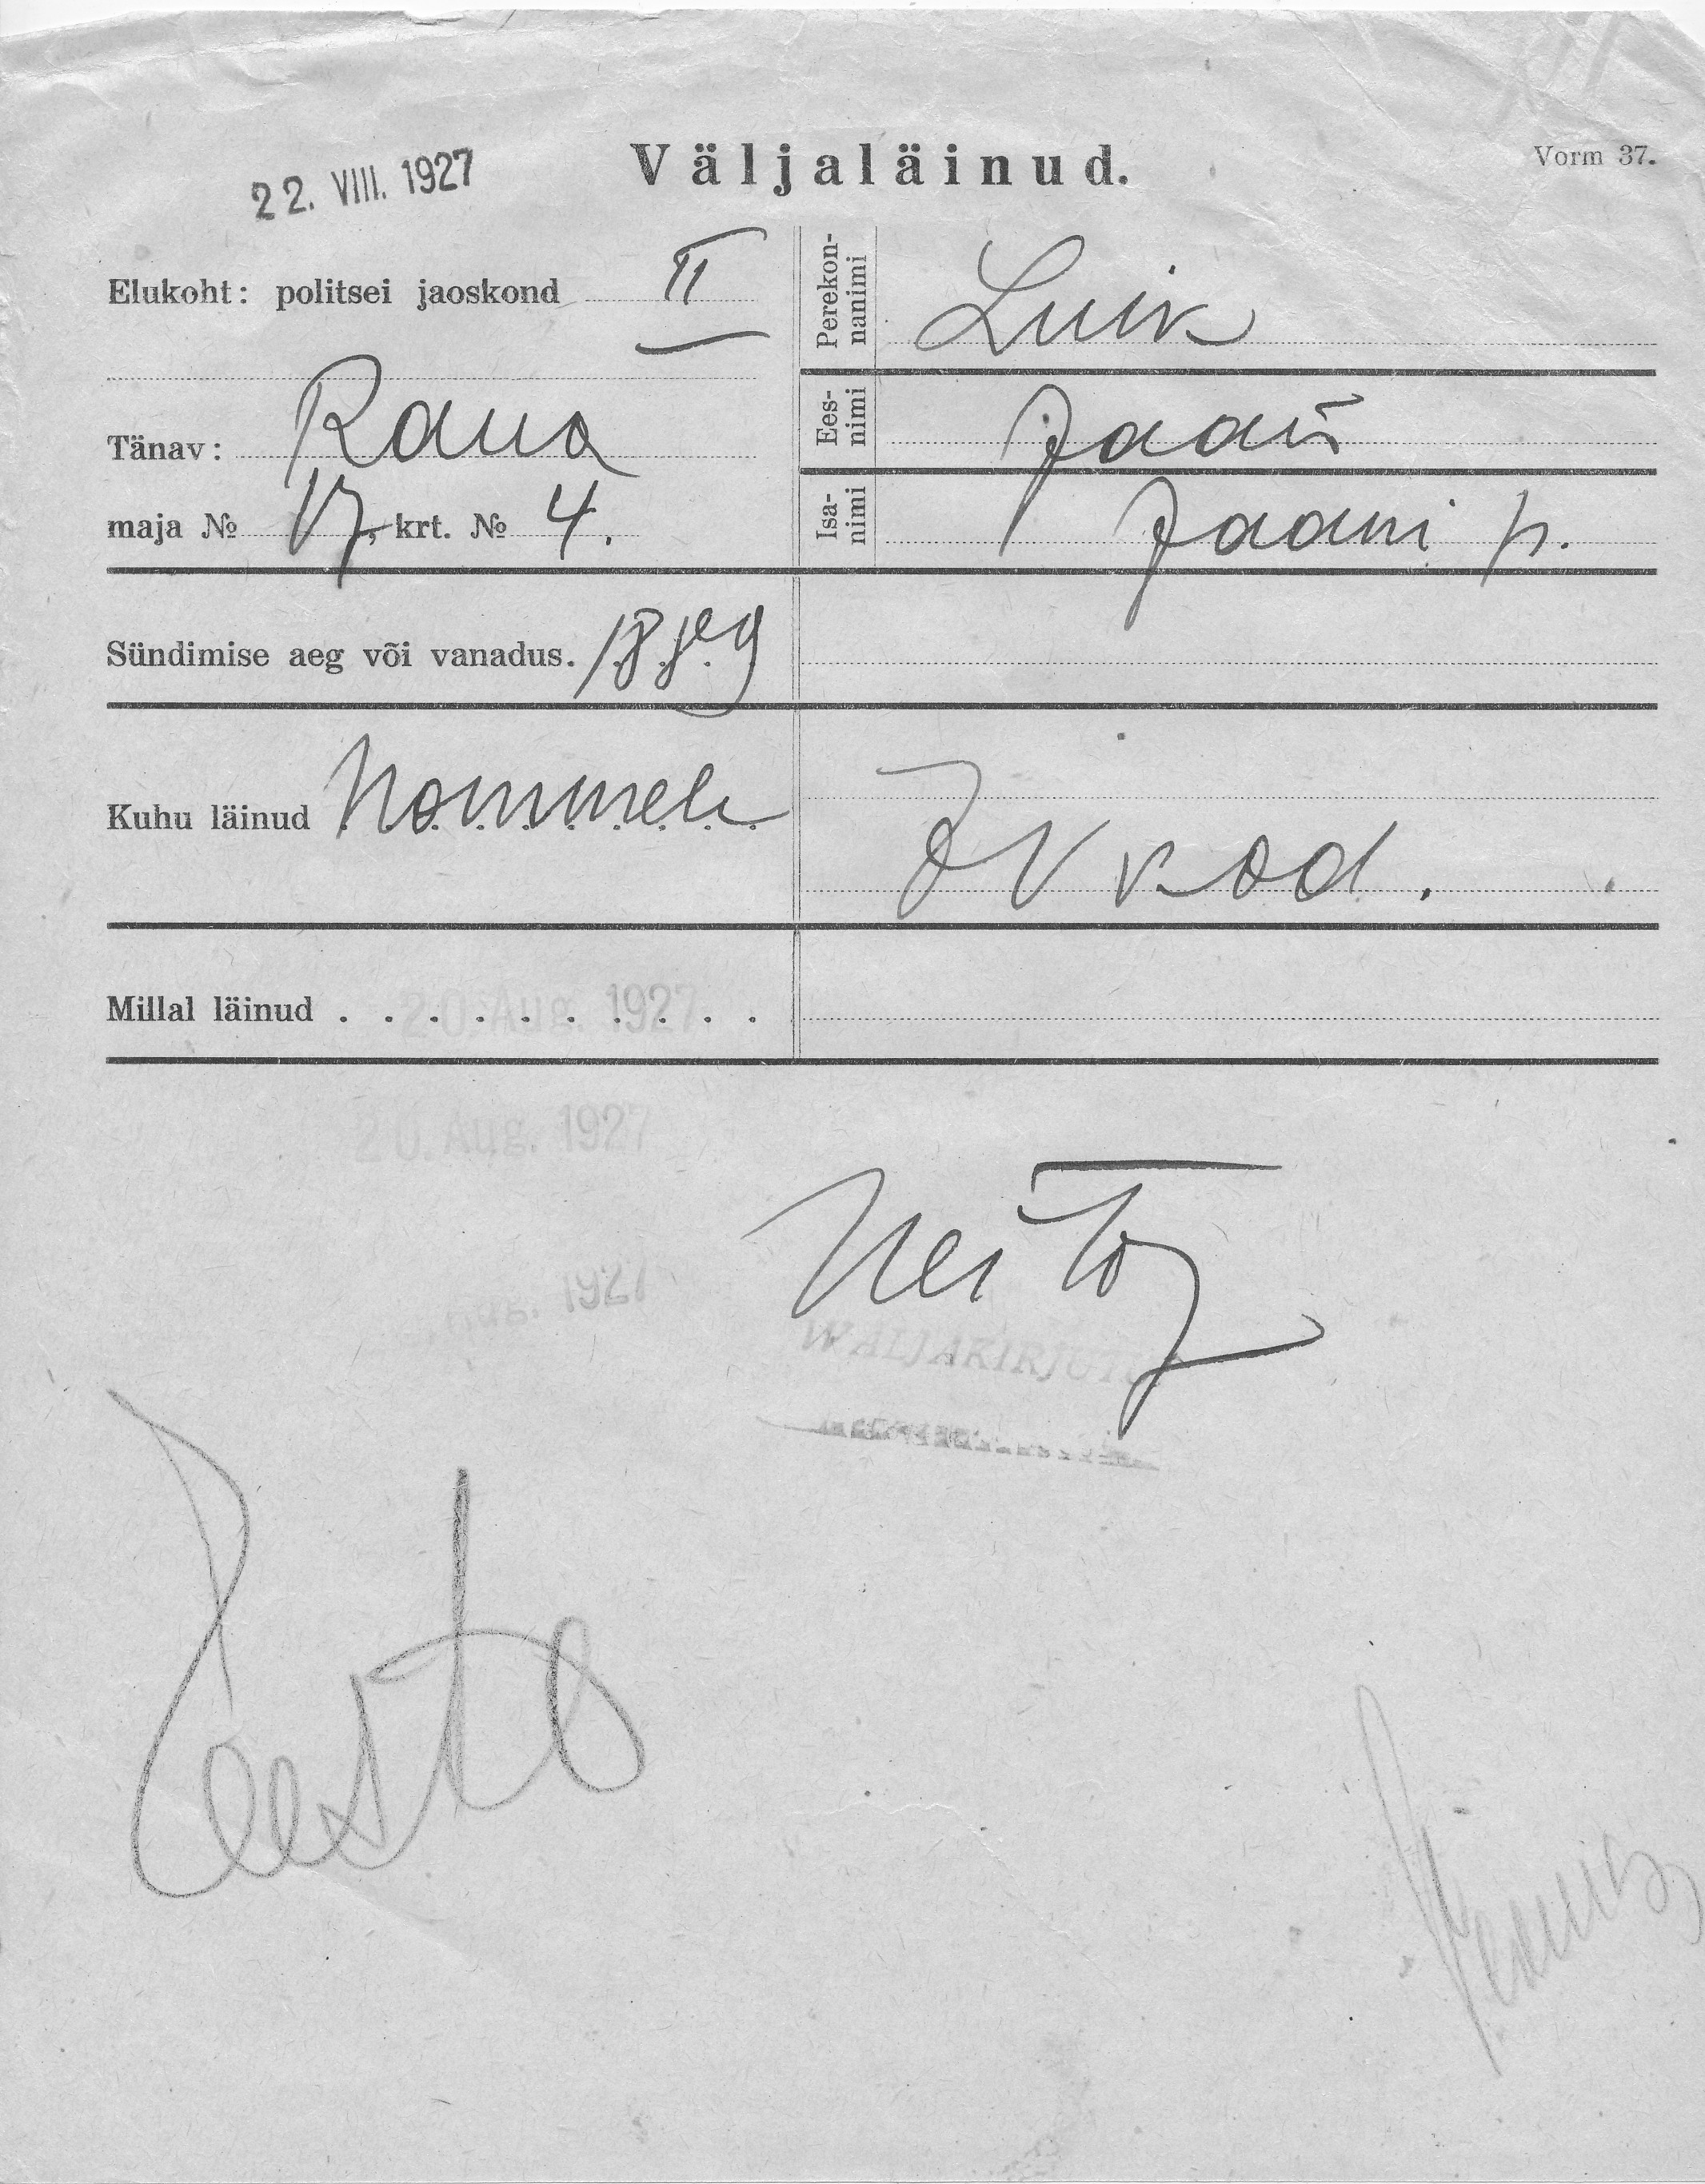 Vorm 37.
22. VIII. 1927
Väljaläinud.
Elukoht: politsei jaoskond II
Tänav: Raua
maja № 17, krt. № 4.
Perekon-
nanimi
Luik
Ees-
nimi
Jaan
Isa-
nimi
Jaani p.
Sündimise aeg või vanadus. 1889
Kuhu läinud Nõmmele
kod.
Millal läinud 20. Aug. 1927
20. Aug. 1927
Aug. 1927
WÄLJAKIRJUTUD